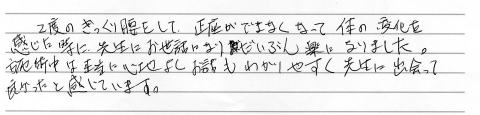 2度のぎっくり腰をして、正座ができなくなって体の変化を
感じた時に、先生にお世話になりだいぶん楽になりました。
施術中は非常に心地よくお話もわかりやすく先生に出会って
良かったと感じています。